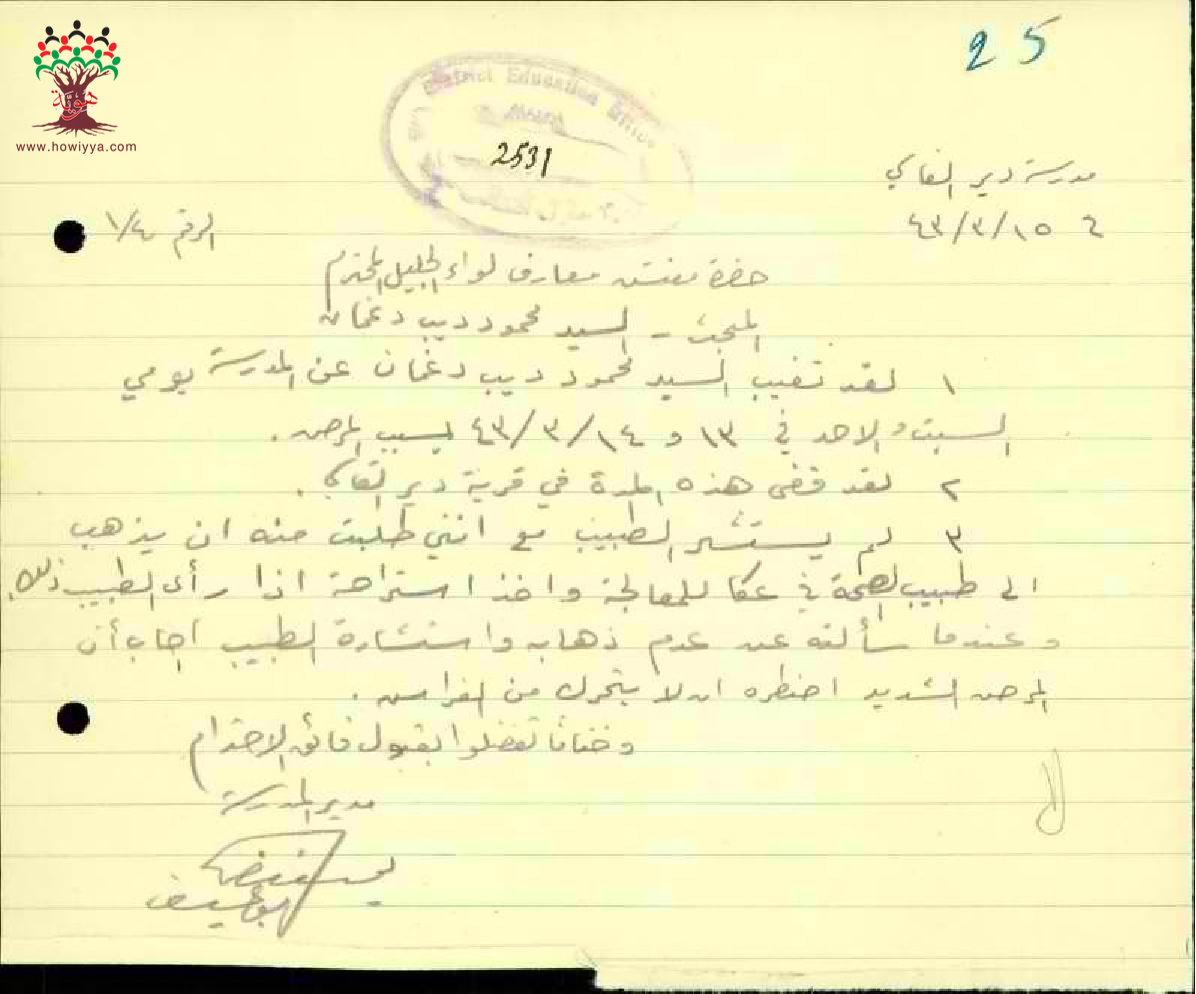 25
هوية
www.howiyya.com
District Education Office
2531
مدرسة دير القاسي
٤٣/٣/١٥
الرقم ١/٤
حضرة مفتش معارف لواء الجليل المحترم
المبحث - السيد محمود ديب دغمان
١ لقد تغيب السيد محمود ديب دغمان عن المدرسة يومي
السبت والاحد في ١٣ و ٤٣/٣/١٤ بسبب المرض.
٢ لقد قضى هذه المدة في قرية دير القاسي.
٣ لم يستشر الطبيب مع انني طلبت منه ان يذهب
الى طبيب الصحة في عكا للمعالجة واخذ استراحة اذا رأى الطبيب ذلك.
وعندما سألته عن عدم ذهابه واستشارة الطبيب اجاب أن
المرض الشديد اضطره ان لا يتحرك من الفراش.
وختاما تفضلوا بقبول فائق الاحترام
مدير المدرسة